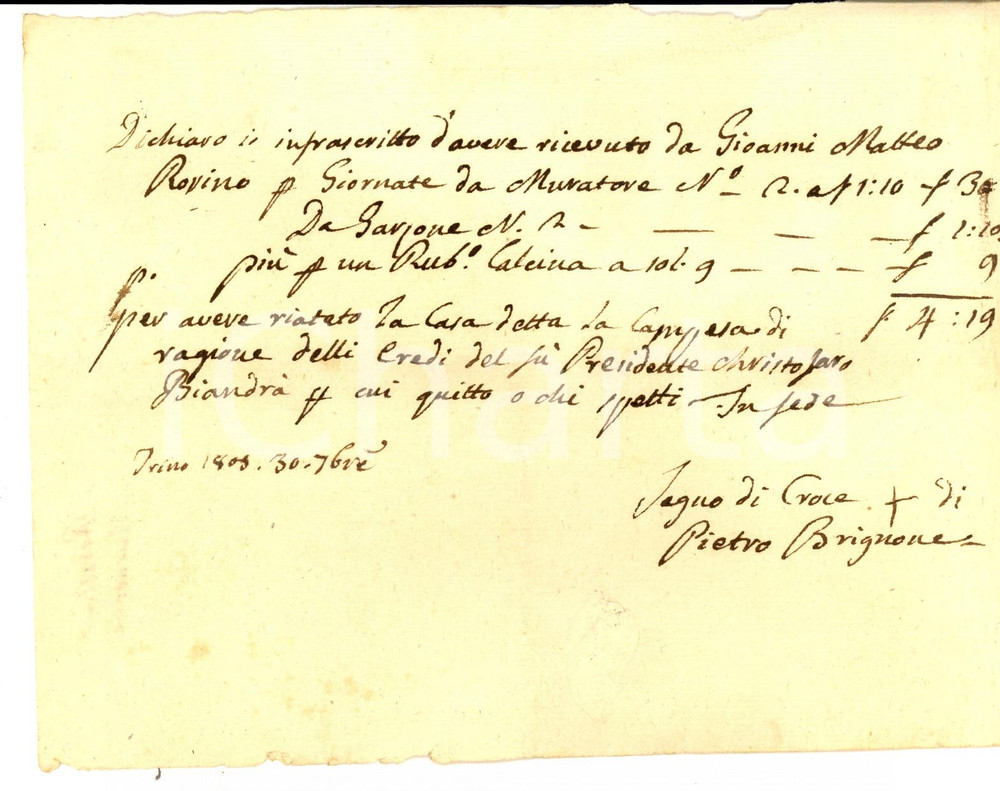 Dichiaro io infrascritto d'avere ricevuto da Gioanni Matteo
Rovino p Giornate da Muratore N.º 2. a £ 1:10 - £ 3
Da Garzone N. 2 - — — — £ 1:10
più p un Rub.º Calcina a sol. 9 — — — £ 9
per avere riatato la Casa detta la Campesa di £ 4:19
ragione delli Eredi del fù Presidente Christofaro
Biandrà p cui quitto o chi spetti - In fede
Trino 1808. 30. 7bre
Segno di Croce + di
Pietro Brignone
iCharta